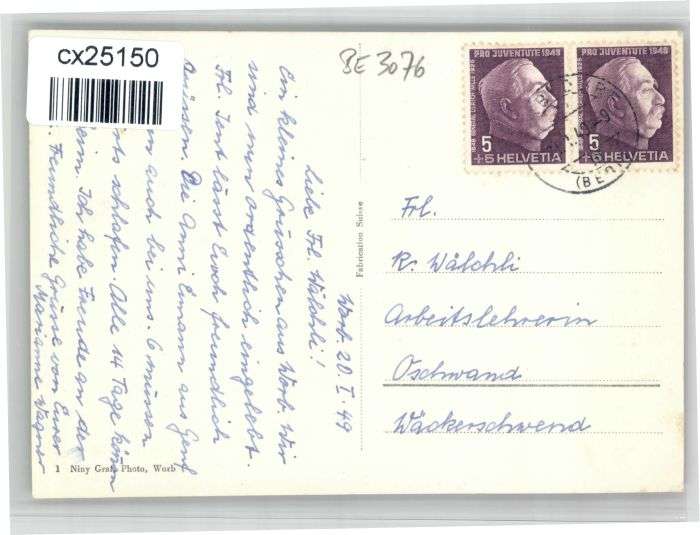 cx25150
BE 3076
PRO JUVENTUTE 1948
5
+5 HELVETIA
PRO JUVENTUTE 1948
5
+5 HELVETIA
(BERN)
Worb. 20. I. 49
Liebe Frl. Wälchli!
Ein kleines Grüsschen aus Worb. Wir
sind nun ordentlich eingelebt.
Frl. lässt Euch freundlich
grüssen. Die Anni Emann aus Genf
auch bei uns. 6 müssen
schlafen. Alle 14 Tage können
heim. Ich habe Freude an der
Freundliche Grüsse von Eurer
Marianne Wagner
Fabrication Suisse
Frl.
K. Wälchli
Arbeitslehrerin
Oschwand
Wäckerschwend
1 Niny Graf, Photo, Worb